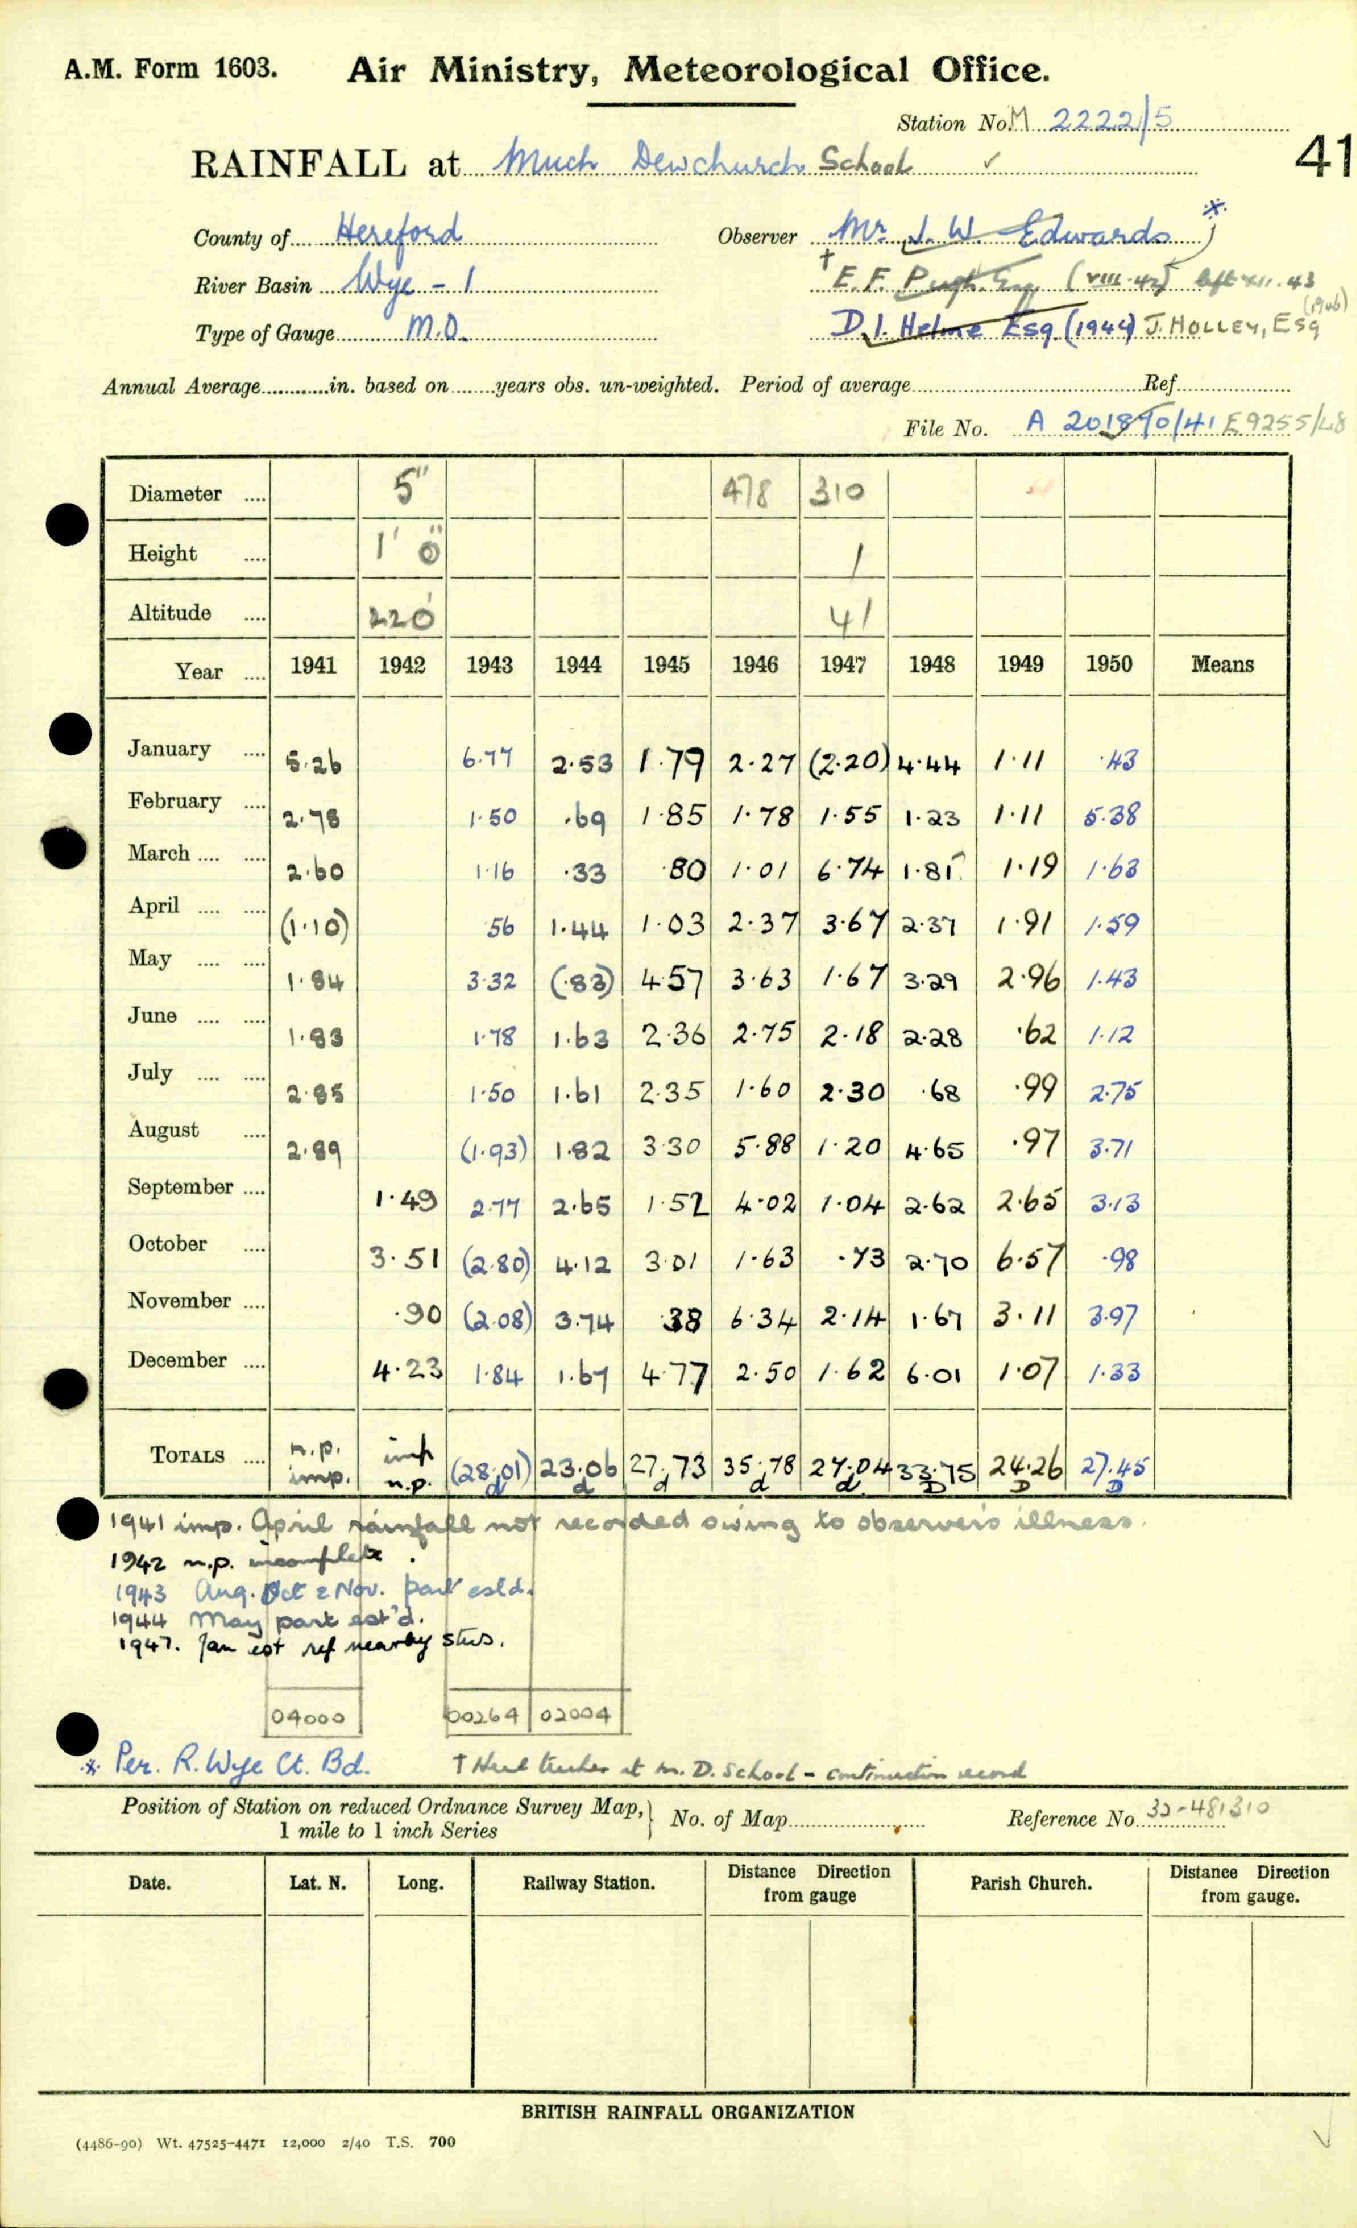 A.M. Form 1603. Air Ministry, Meteorological Office.
Station No. M 2222/5
41
RAINFALL at Much Dewchurch School ✓
County of Hereford Observer Mr. J. W. Edwards *
River Basin Wye - 1 † E. F. Pugh. Esq (VIII.42) left XII.43
Type of Gauge M.O. D. I. Helme Esq. (1944) J. HOLLEY, Esq (1946)
Annual Average in. based on years obs. un-weighted. Period of average Ref
File No. A 201890/41 E9255/48
Diameter 5" 478 310
Height 1' 0" 1
Altitude 220' 41
Year 1941 1942 1943 1944 1945 1946 1947 1948 1949 1950 Means
January 5.26 6.77 2.53 1.79 2.27 (2.20) 4.44 1.11 .43
February 2.78 1.50 .69 1.85 1.78 1.55 1.23 1.11 5.38
March 2.60 1.16 .33 .80 1.01 6.74 1.81 1.19 1.63
April (1.10) .56 1.44 1.03 2.37 3.67 2.37 1.91 1.59
May 1.84 3.32 (.83) 4.57 3.63 1.67 3.29 2.96 1.43
June 1.83 1.78 1.63 2.36 2.75 2.18 2.28 .62 1.12
July 2.85 1.50 1.61 2.35 1.60 2.30 .68 .99 2.75
August 2.89 (1.93) 1.82 3.30 5.88 1.20 4.65 .97 3.71
September 1.49 2.77 2.65 1.52 4.02 1.04 2.62 2.65 3.13
October 3.51 (2.80) 4.12 3.01 1.63 .73 2.70 6.57 .98
November .90 (2.08) 3.74 .38 6.34 2.14 1.67 3.11 3.97
December 4.23 1.84 1.67 4.77 2.50 1.62 6.01 1.07 1.33
TOTALS n.p. imp. imp n.p. (28.01) d 23.06 d 27.73 d 35.78 d 27.04 d 33.75 D 24.26 D 27.45 D
1941 imp. April rainfall not recorded owing to observer's illness.
1942 n.p. incomplete.
1943 Aug. Oct & Nov. part estd.
1944 May part est'd.
1947. Jan est ref nearby stns.
04000 00264 02004
* Per. R. Wye Ct. Bd. † Head teacher at M. D. School - continuation record
Position of Station on reduced Ordnance Survey Map, 1 mile to 1 inch Series No. of Map Reference No. 32-481310
Date. Lat. N. Long. Railway Station. Distance Direction from gauge Parish Church. Distance Direction from gauge.
BRITISH RAINFALL ORGANIZATION
(4486-90) Wt. 47525-4471 12,000 2/40 T.S. 700